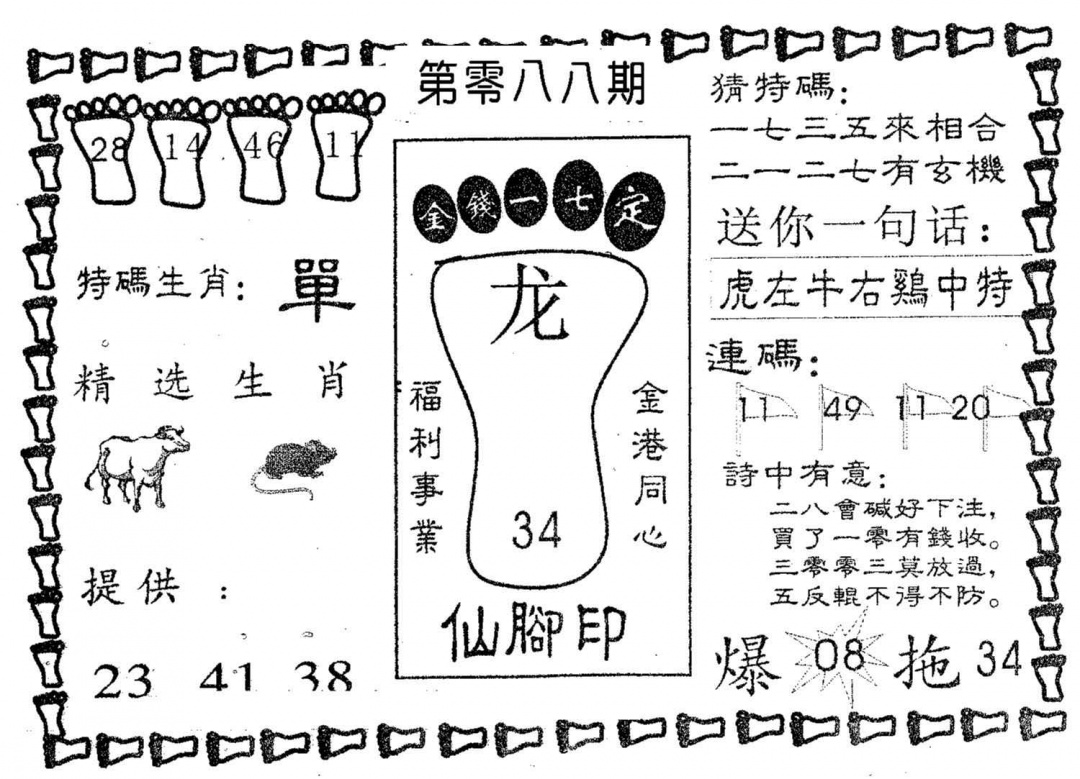 第零八八期
28 14 46 11
特碼生肖：單
精选生肖
提供：
23 41 38
金錢一七定
龙
福利事業
金港同心
34
仙腳印
猜特碼：
一七三五來相合
二一二七有玄機
送你一句话：
虎左牛右鷄中特
連碼：
11 49 11 20
詩中有意：
二八會碱好下注，
買了一零有錢收。
三零零三莫放過，
五反輥不得不防。
爆 08 拖 34